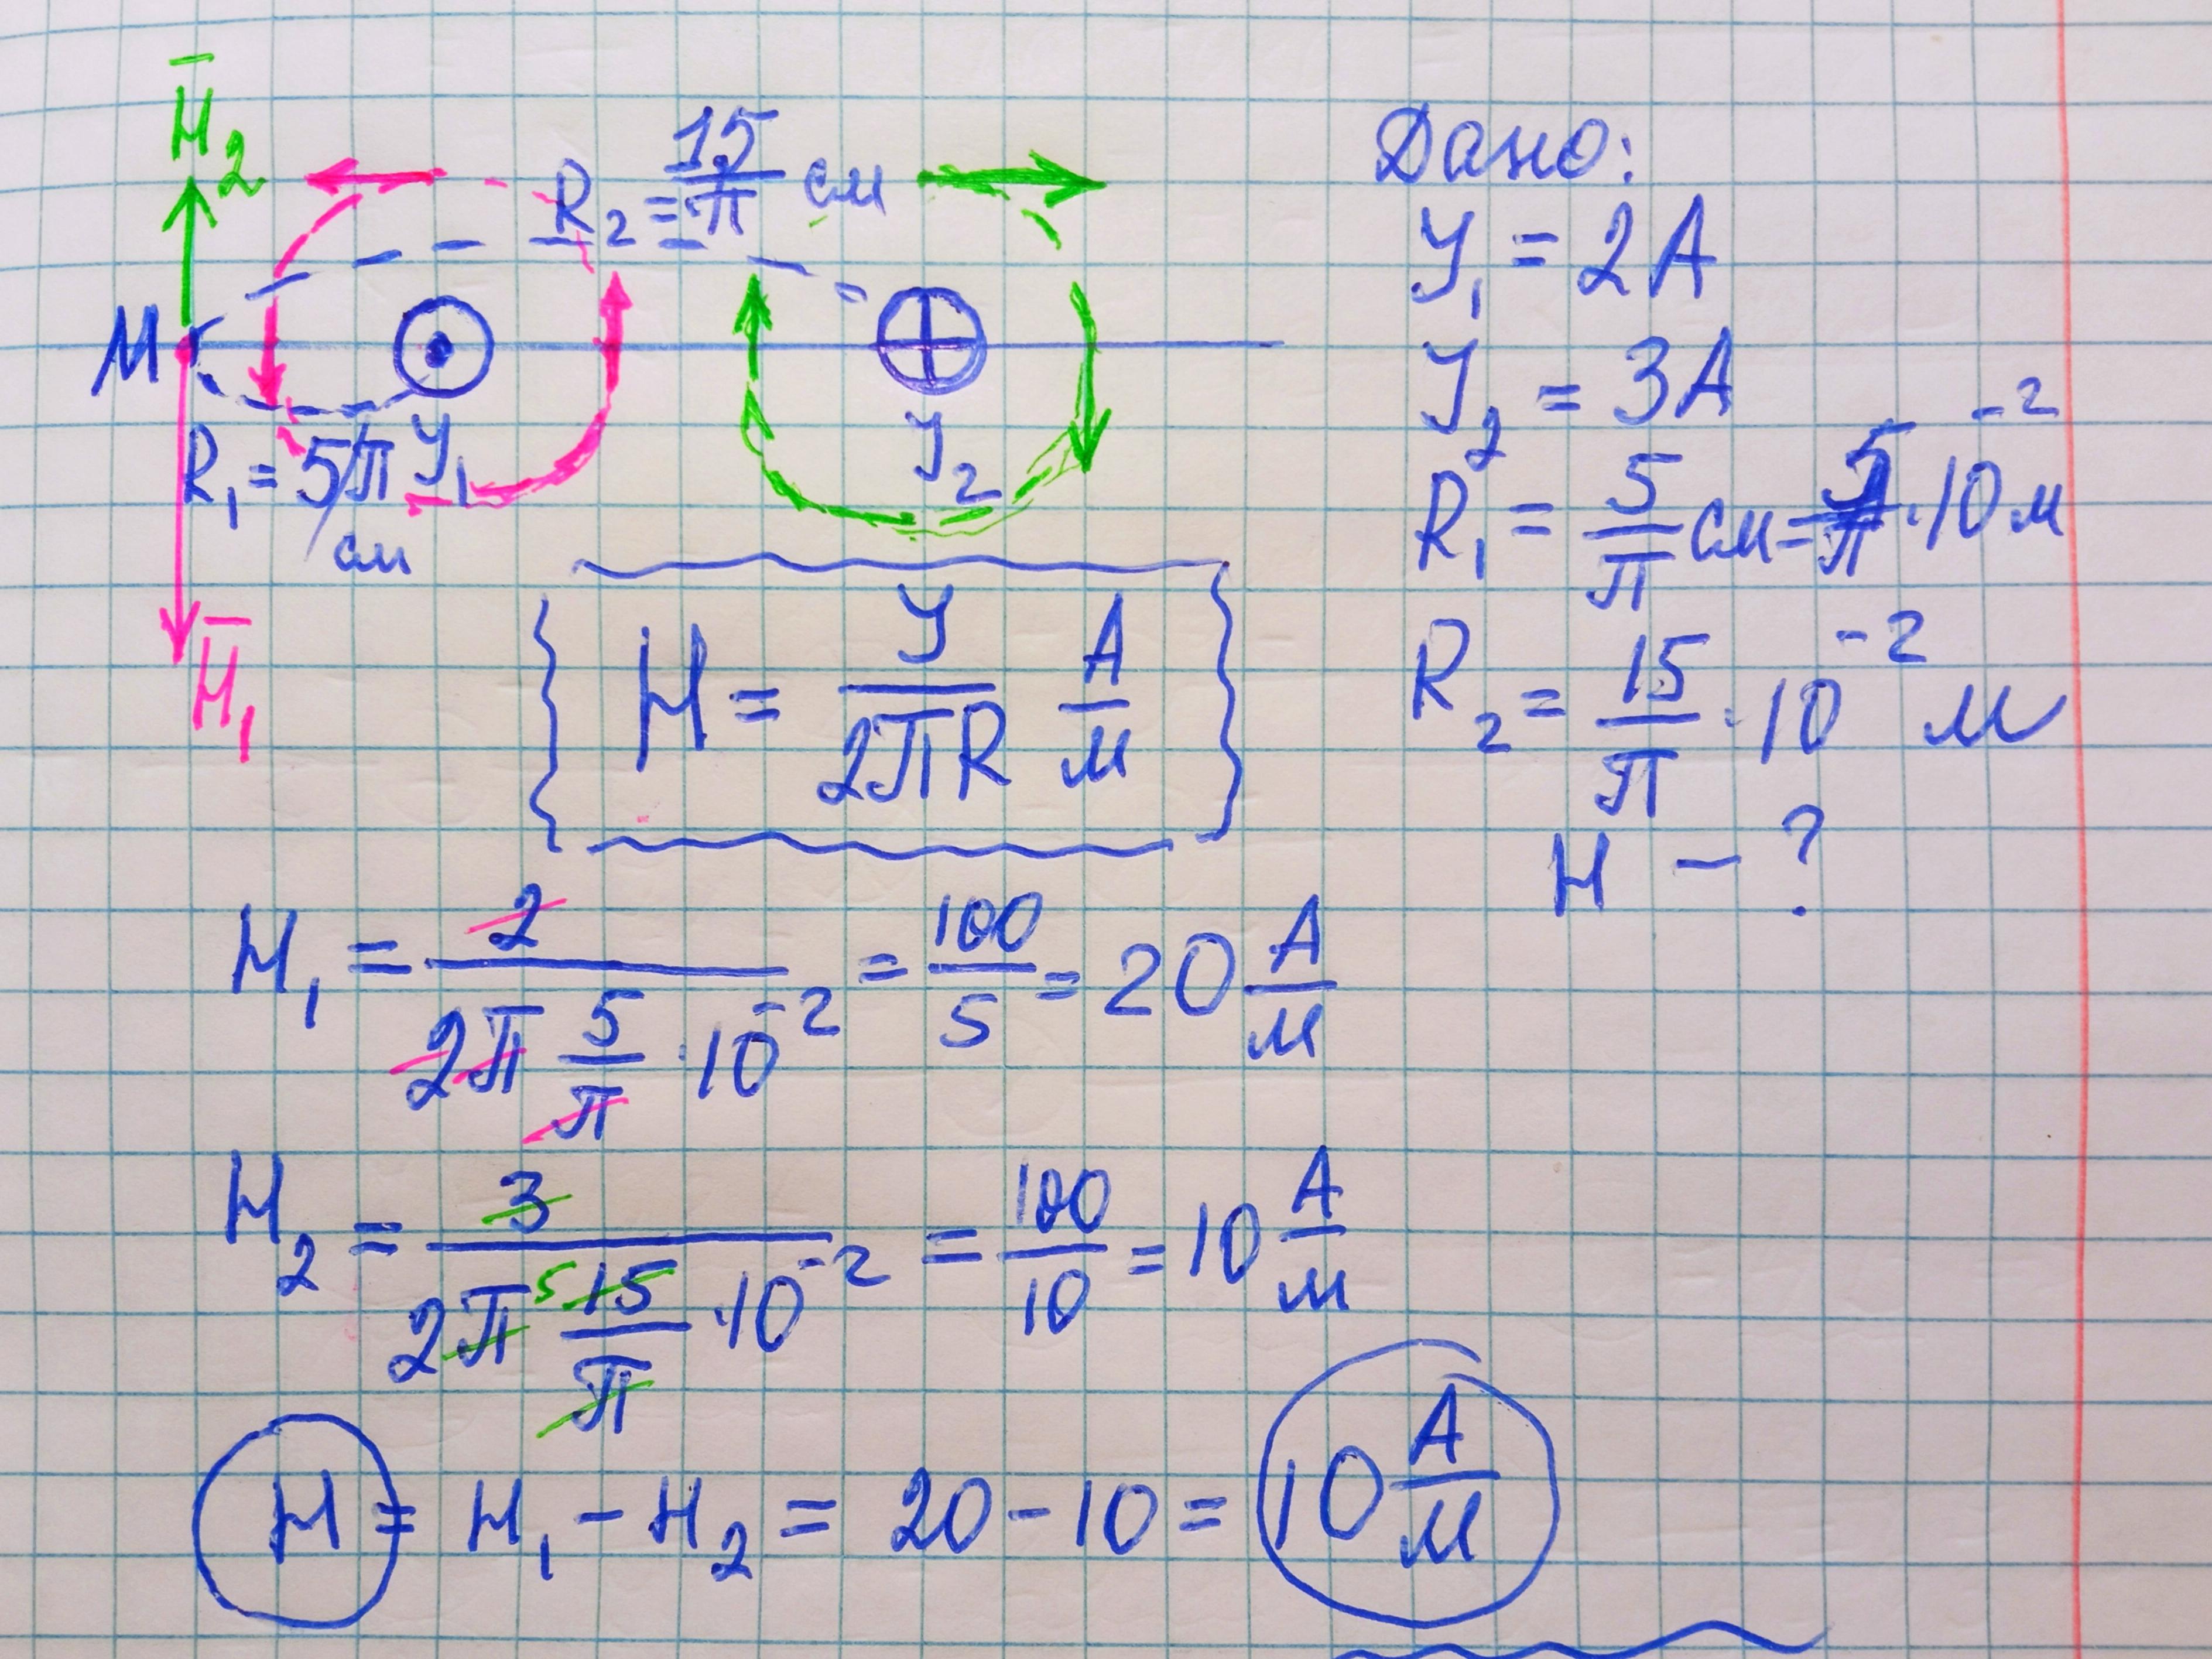 H̅₂
R₂ = 15/π см
M
R₁ = 5/π см
У₁
У₂
H̅₁
Дано:
У₁ = 2А
У₂ = 3А
R₁ = 5/π см = 5/π · 10⁻² м
R₂ = 15/π · 10⁻² м
H - ?
H = У/2πR А/м
H₁ = 2/(2π 5/π · 10⁻²) = 100/5 = 20 А/м
H₂ = 3/(2π 5 15/π · 10⁻²) = 100/10 = 10 А/м
H = H₁ - H₂ = 20 - 10 = 10 А/м